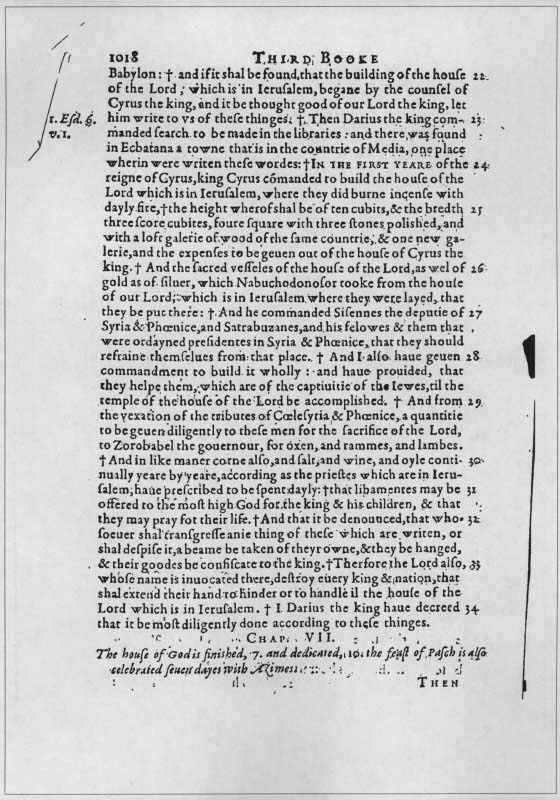 1018 THIRD BOOKE
Babylon: † and if it shal be found, that the building of the house 22
of the Lord, which is in Ierusalem, begane by the counsel of
Cyrus the king, and it be thought good of our Lord the king, let
1. Esd. 6. him write to vs of these thinges. †. Then Darius the king com- 23
v. 1. manded search to be made in the libraries: and there was found
in Ecbatana a towne that is in the countrie of Media, one place
wherin were writen these wordes: † IN THE FIRST YEARE of the 24
reigne of Cyrus, king Cyrus cōmanded to build the house of the
Lord which is in Ierusalem, where they did burne incense with
dayly fire, † the height wherof shal be of ten cubits, & the bredth 25
three score cubites, foure square with three stones polished, and
with a loft galerie of wood of the same countrie, & one new ga-
lerie, and the expenses to be geuen out of the house of Cyrus the
king. † And the sacred vesseles of the house of the Lord, as wel of 26
gold as of siluer, which Nabuchodonosor tooke from the house
of our Lord, which is in Ierusalem where they were layed, that
they be put there: †. And he commanded Sisennes the deputie of 27
Syria & Phœnice, and Satrabuzanes, and his felowes & them that
were ordayned presidentes in Syria & Phœnice, that they should
refraine themselues from that place. † And I also haue geuen 28
commandment to build it wholly: and haue prouided, that
they helpe them, which are of the captiuitie of the Iewes, til the
temple of the house of the Lord be accomplished. † And from 29
the vexation of the tributes of Cœlesyria & Phœnice, a quantitie
to be geuen diligently to these men for the sacrifice of the Lord,
to Zorobabel the gouernour, for oxen, and rammes, and lambes.
† And in like maner corne also, and salt, and wine, and oyle conti- 30
nually yeare by yeare, according as the priestes which are in Ieru-
salem, haue prescribed to be spent dayly: † that libamentes may be 31
offered to the most high God for the king & his children, & that
they may pray for their life. † And that it be denounced, that who- 32
soeuer shal transgresse anie thing of these which are writen, or
shal despise it, a beame be taken of theyr owne, & they be hanged,
& their goodes be confiscate to the king. † Therfore the Lord also, 33
whose name is inuocated there, destroy euery king & nation, that
shal extend their hand to hinder or to handle il the house of the
Lord which is in Ierusalem. † I Darius the king haue decreed 34
that it be most diligently done according to these thinges.
CHAP. VII.
The house of God is finished, 7. and dedicated, 10. the feast of Pasch is also
celebrated seuen dayes with Azimes
THEN